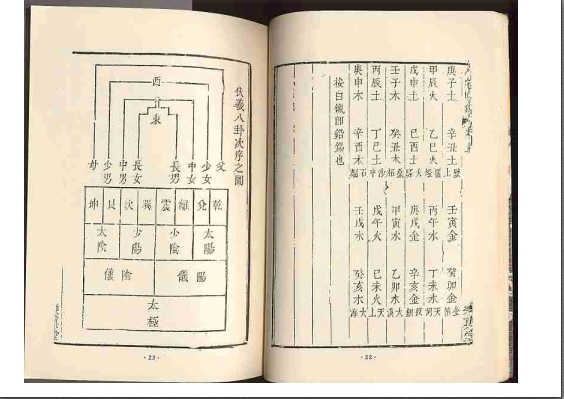 庚子土 辛丑土 壁上 壬寅金 癸卯金 金箔
甲辰火 乙巳火 丙午水 丁未水 天河
戊申土 己酉土 大驛 庚戌金 辛亥金 釵釧
壬子木 癸丑木 桑柘 甲寅水 乙卯水 大溪
丙辰土 丁巳土 沙中 戊午火 己未火 天上
庚申木 辛酉木 石榴 壬戌水 癸亥水 大海
按白鑞即鉛錫也
·22·
伏羲八卦次序之圖
西
東
父 少女 中女 長男 長女 中男 少男 母
乾 兌 離 震 巽 坎 艮 坤
太陽 少陰 少陽 太陰
陽儀 陰儀
太極
·23·